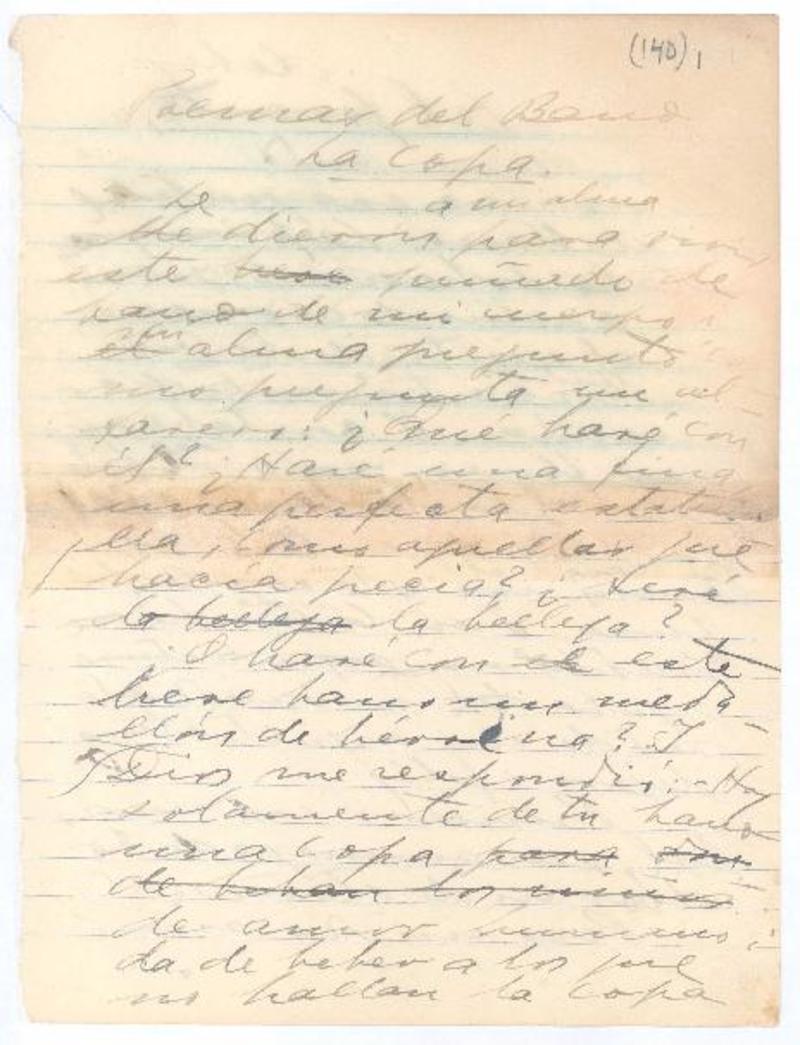 (140) 1
Poemas del Barro
La Copa.
Le a mi alma
Me dieron para vivir
este breve puñado de
barro de mi cuerpo i
el mi alma preguntó có
mo pregunta un al-
farero: ¿Qué haré con
él? ¿Haré una
una perfecta estatu
lla, como aquellas que
hacía ? ¿Seré
la belleza la belleza?
O haré con el este
breve barro un meda-
llón de heroína? I
Dios me respondió: -Haz
solamente de tu barro
una copa para
de beban los niños
de amor humano i
da de beber a los que
no hallan la copa